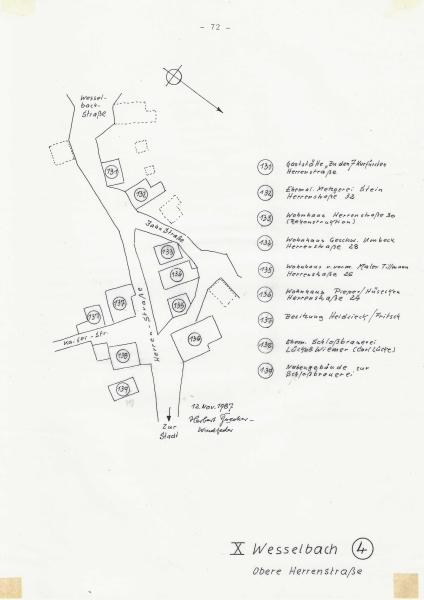 - 72 -
Wessel-
bach-
Straße
131
132
Jahn Straße
133
134
135
136
137
137
Kaiser-Str.
138
139
Herren-Straße
12. Nov. 1987
Herbert
Zur
Stadt
131 Gaststätte „Zu den 7 Kurfürsten
Herrenstraße
132 Ehemal. Metzgerei Stein
Herrenstraße 32
133 Wohnhaus Herrenstraße 30
(Rekonstruktion)
134 Wohnhaus Geschw. Umbeck
Herrenstraße 28
135 Wohnhaus v. vorm. Maler Tillmann
Herrenstraße 26
136 Wohnhaus Pieper/Hüsecken
Herrenstraße 24
137 Besitzung Heldsieck/Fritsch
138 Ehem. Schloßbrauerei
Wiemer (Carl Lücke)
139 Nebengebäude zur
Schloßbrauerei
X Wesselbach 4
Obere Herrenstraße